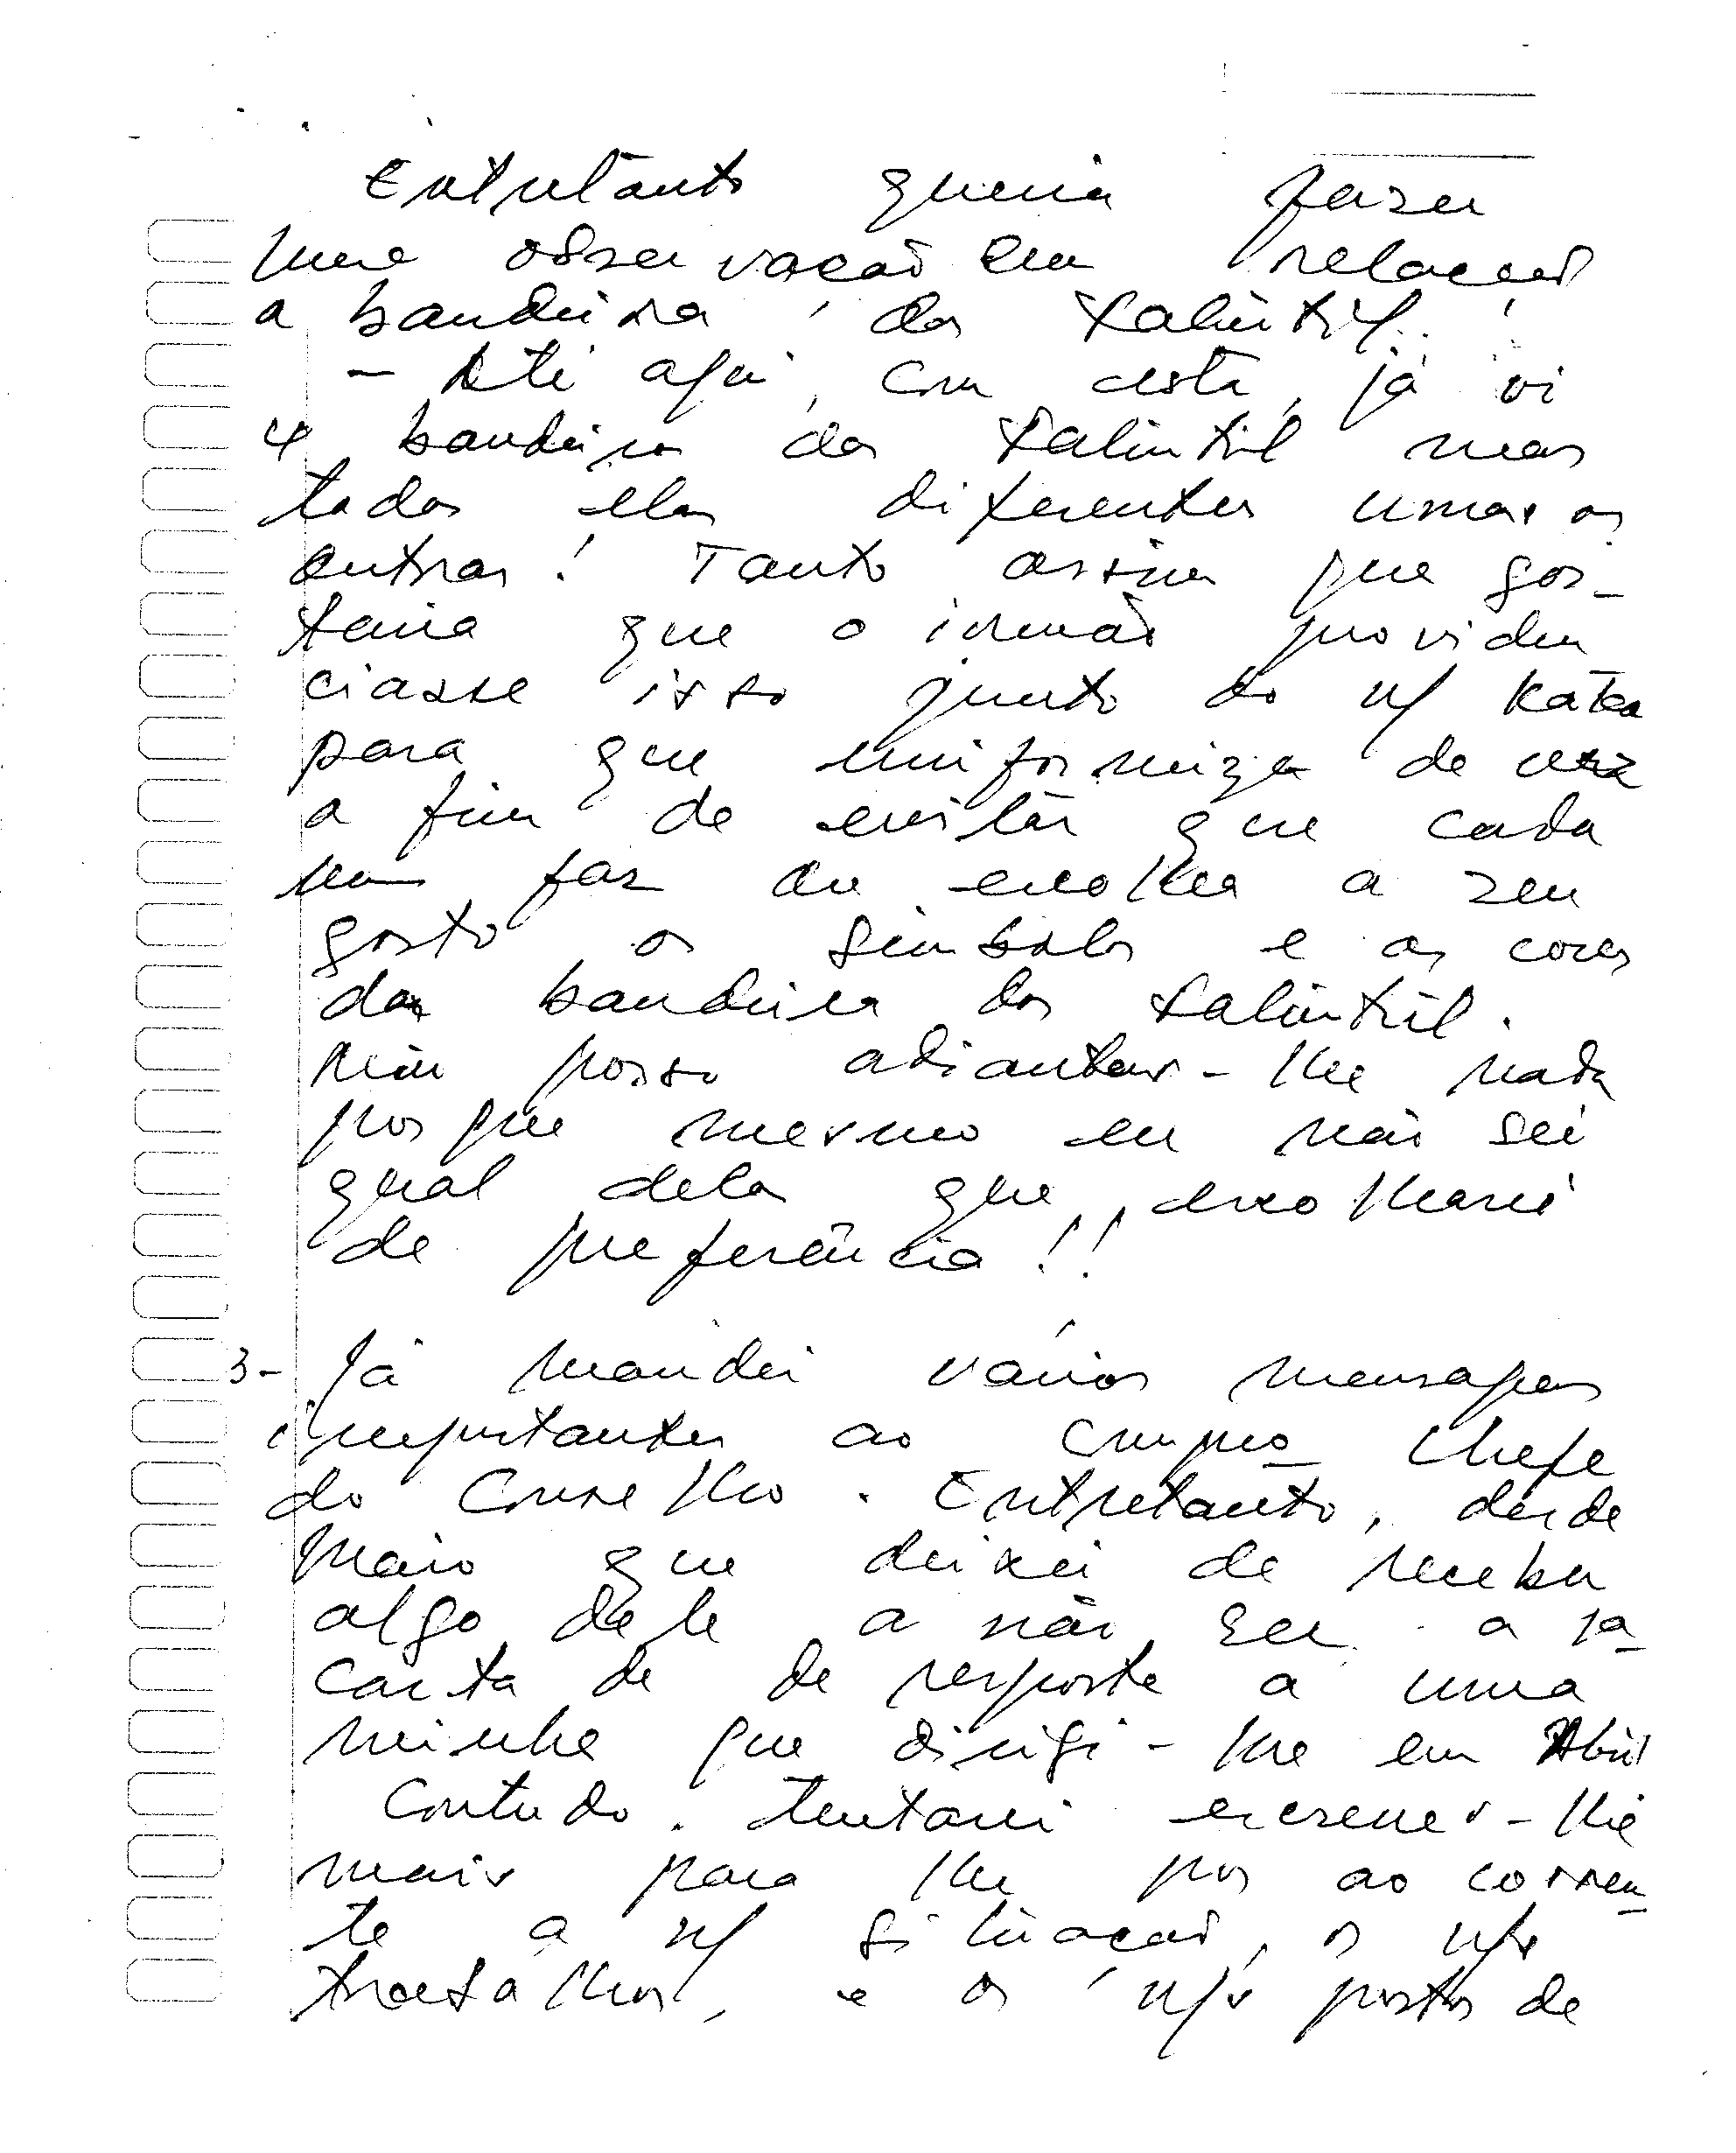 Entretanto queria fazer
uma observação em relação
a bandeira das Falintil!
- Até aqui, com esta, já vi
4 bandeiras das Falintil mas
todas elas diferentes umas as
outras! Tanto assim que gos-
taria que o irmão providen
ciasse isso junto do n/ Katua
para que uniformize de vez
a fim de evitar que cada
um faz ou escolha a seu
gosto os símbolos e as cores
da bandeira das Falintil.
Não posso adiantar-lhe nada
porque mesmo eu não sei
qual delas que escolherei
de preferência!!
3- Já mandei várias mensagens
importantes ao compro Chefe
do Conselho. Entretanto, desde
Maio que deixei de receber
algo dele a não ser a 1a
carta de de resposta a uma
minha que dirigi-lhe em Abril
Contudo. tentarei escrever-lhe
mais para lhe pôr ao corren-
te a n/ situação, os n/s
trabalhos, e os n/s postos de